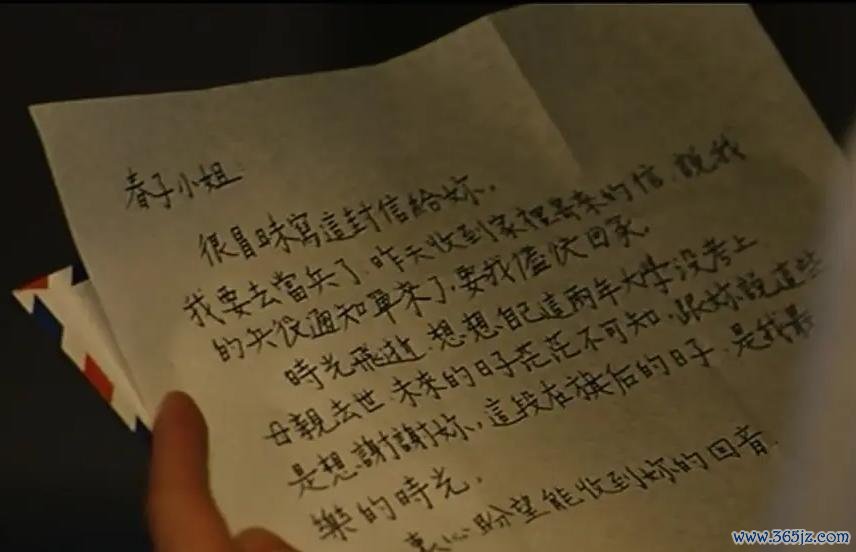 春子小姐
很冒昧寫這封信給妳,
我要去當兵了.昨天收到家裡寄來的信.說我
的兵役通知單來了,要我儘快回家.
時光飛逝.想想自己這兩年大學沒考上
母親去世.未來的日子茫茫不可知.跟妳說這些
是想謝謝妳,這段在旗后的日子.是我最
樂的時光.
衷心盼望能收到妳的回音.
www.365jz.com